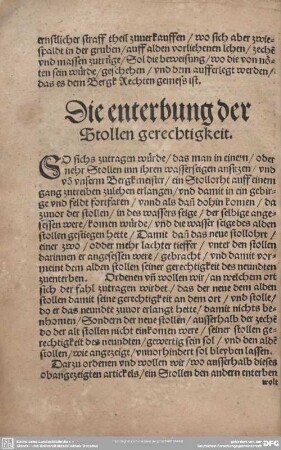 ernstlicher straff theil zuuerkauffen / wo sich aber zwie-
spaldt in der gruben / auff alden vorliehenen lehen / zechē
vnd massen zutrüge / Sol die beweisung / wo die von nö-
ten sein würde / geschehen / vnd dem aufferlegt werden /
das es dem Bergk Rechten gemess ist.
Die enterbung der
Stollen gerechtigkeit.
SO sichs zutragen würde / das man in einem / oder
mehr Stollen inn ihren wasserseigen ansitzen / vnd
vō vnserm Bergkmeister / ein Stollorth auff einem
gang zutreiben zulehen erlangen / vnd damit in ein gebir-
ge vnd feldt fortfaren / vnnd als dañ dohin komen / da
zuuor der stollen / in des wassers seige / der selbige ange-
sessen were / komen würde / vnd die wasser seige des alden
stollen gestiegen hette / Damit dañ das neue stollohrt /
einer zwo / odder mehr lachter tieffer / vnter den stollen
darinnen er angesessen were / gebracht / vnd damit vor-
meint dem alden stollen seiner gerechtigkeit des neundten
zuenterben. Ordenen vñ wollen wir / an welchem ort
sich der fahl zutragen wirdet / das der neue dem alden
stollen damit seine gerechtigkeit an dem ort / vnd stolle /
do er das neundte zuuor erlangt hette / damit nichts be-
nhomen / Sondern der neue stollen / ausserhalb der zechē
do der alt stollen nicht einkomen were / seiner stollen ge-
rechtigkeit des neundten / gewertig sein sol / vnd den aldē
stollen / wie angezeigt / vnuorhindert sol bleyben lassen.
Darzu ordenen vnd wollen wir / wo ausserhalb dieses
obangezeigten artickels / ein Stollen den andern enterben
wolt